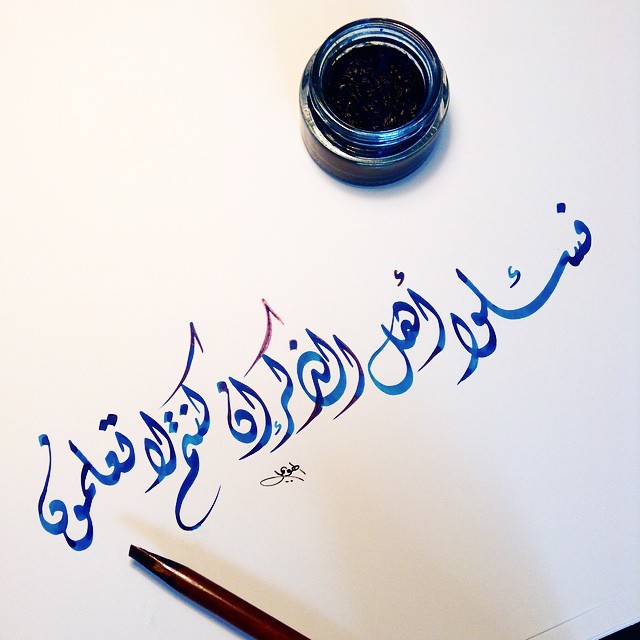 فسئلوا أهل الذكر إن كنتم لا تعلمون